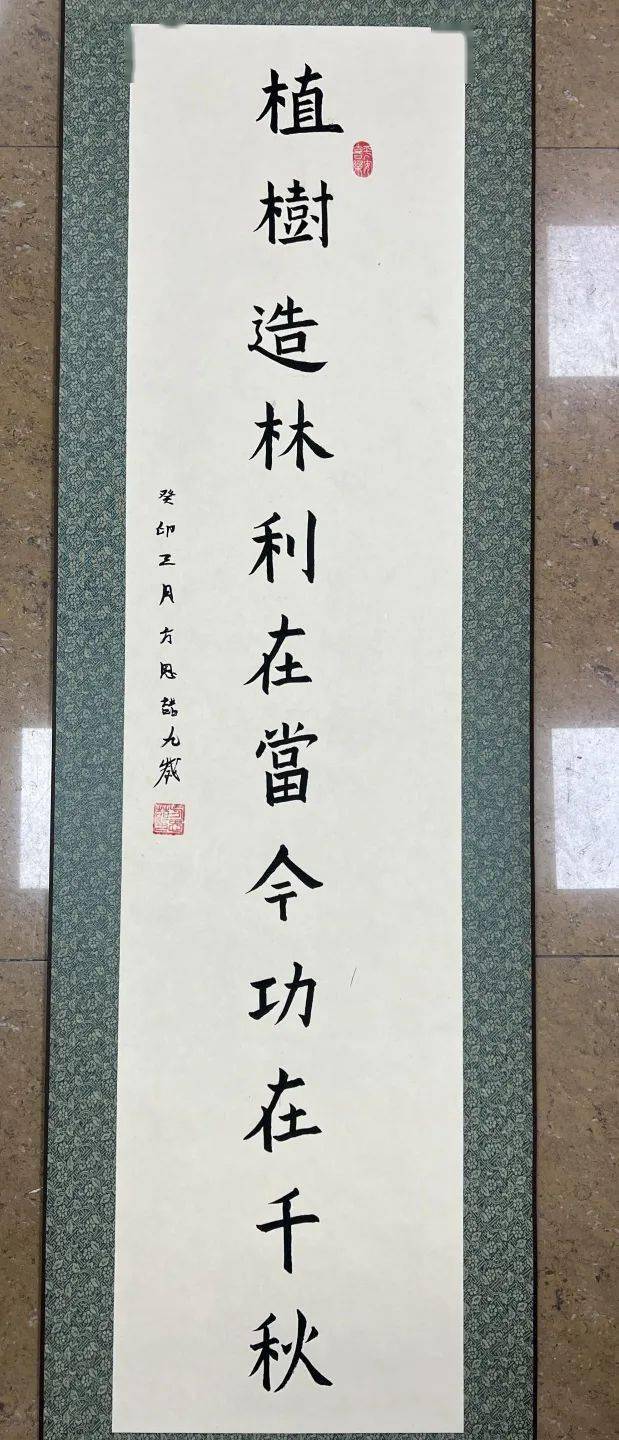 植樹造林利在當今功在千秋
癸卯正月方思喆九歲